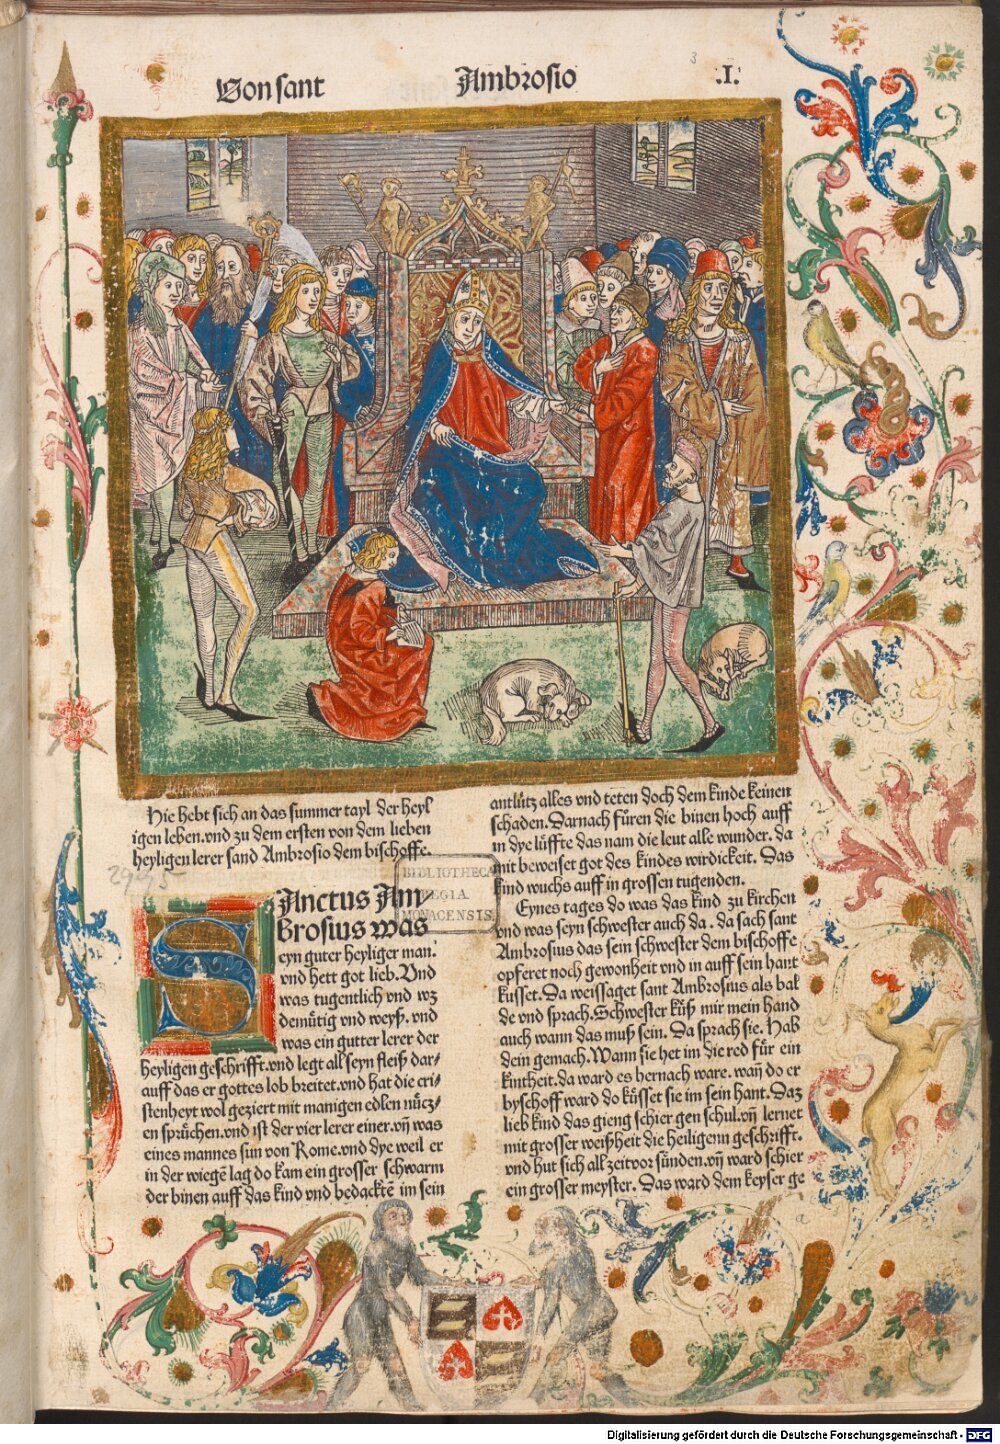 Von sant Ambrosio .I.
3
Hie hebt sich an das summer tayl der heyl
igen leben. vnd zu dem ersten von dem lieben
heyligen lerer sand Ambrosio dem bischoffe.
2995
SAnctus Am
brosius was
eyn guter heyliger man.
vnd hett got lieb. Vnd
was tugentlich vnd wz
demuͤtig vnd weyß. vnd
was ein gutter lerer der
heyligen geschrifft. vnd legt all seyn fleiß dar⸗
auff das er gottes lob breitet. vnd hat die cri⸗
stenheyt wol geziert mit manigen edlen nuͤcz⸗
en spruͤchen. vnd ist der vier lerer einer. vn̄ was
eines mannes sun von Rome. vnd dye weil er
in der wiege lag do kam ein grosser schwarm
der binen auff das kind vnd bedackte im sein
antlütz alles vnd teten doch dem kinde keinen
schaden. Darnach füren die binen hoch auff
in dye lüffte das nam die leut alle wunder. da
mit beweiset got des kindes wirdickeit. Das
kind wuchs auff in grossen tugenden.
Eynes tages do was das kind zu kirchen
vnd was seyn schwester auch da. da sach sant
Ambrosius das sein schwester dem bischoffe
opferet noch gewonheit vnd in auff sein hant
kusset. Da weissaget sant Ambrosius als bal
de vnd sprach. Schwester küß mir mein hand
auch wann das muß sein. Da sprach sie. Hab
dein gemach. Wann sie het im die red fuͤr ein
kintheit. da ward es hernach ware. wan̄ do er
byschoff ward do kuͤsset sie im sein hant. Daz
lieb kind das gieng schier gen schul. vn̄ lernet
mit grosser weißheit die heiligenn geschrifft.
vnd hut sich all zeit vor sünden. vn̄ ward schier
ein grosser meyster. Das ward dem keyser ge
BIBLIOTHECA
REGIA
MONACENSIS.
Digitalisierung gefördert durch die Deutsche Forschungsgemeinschaft - DFG